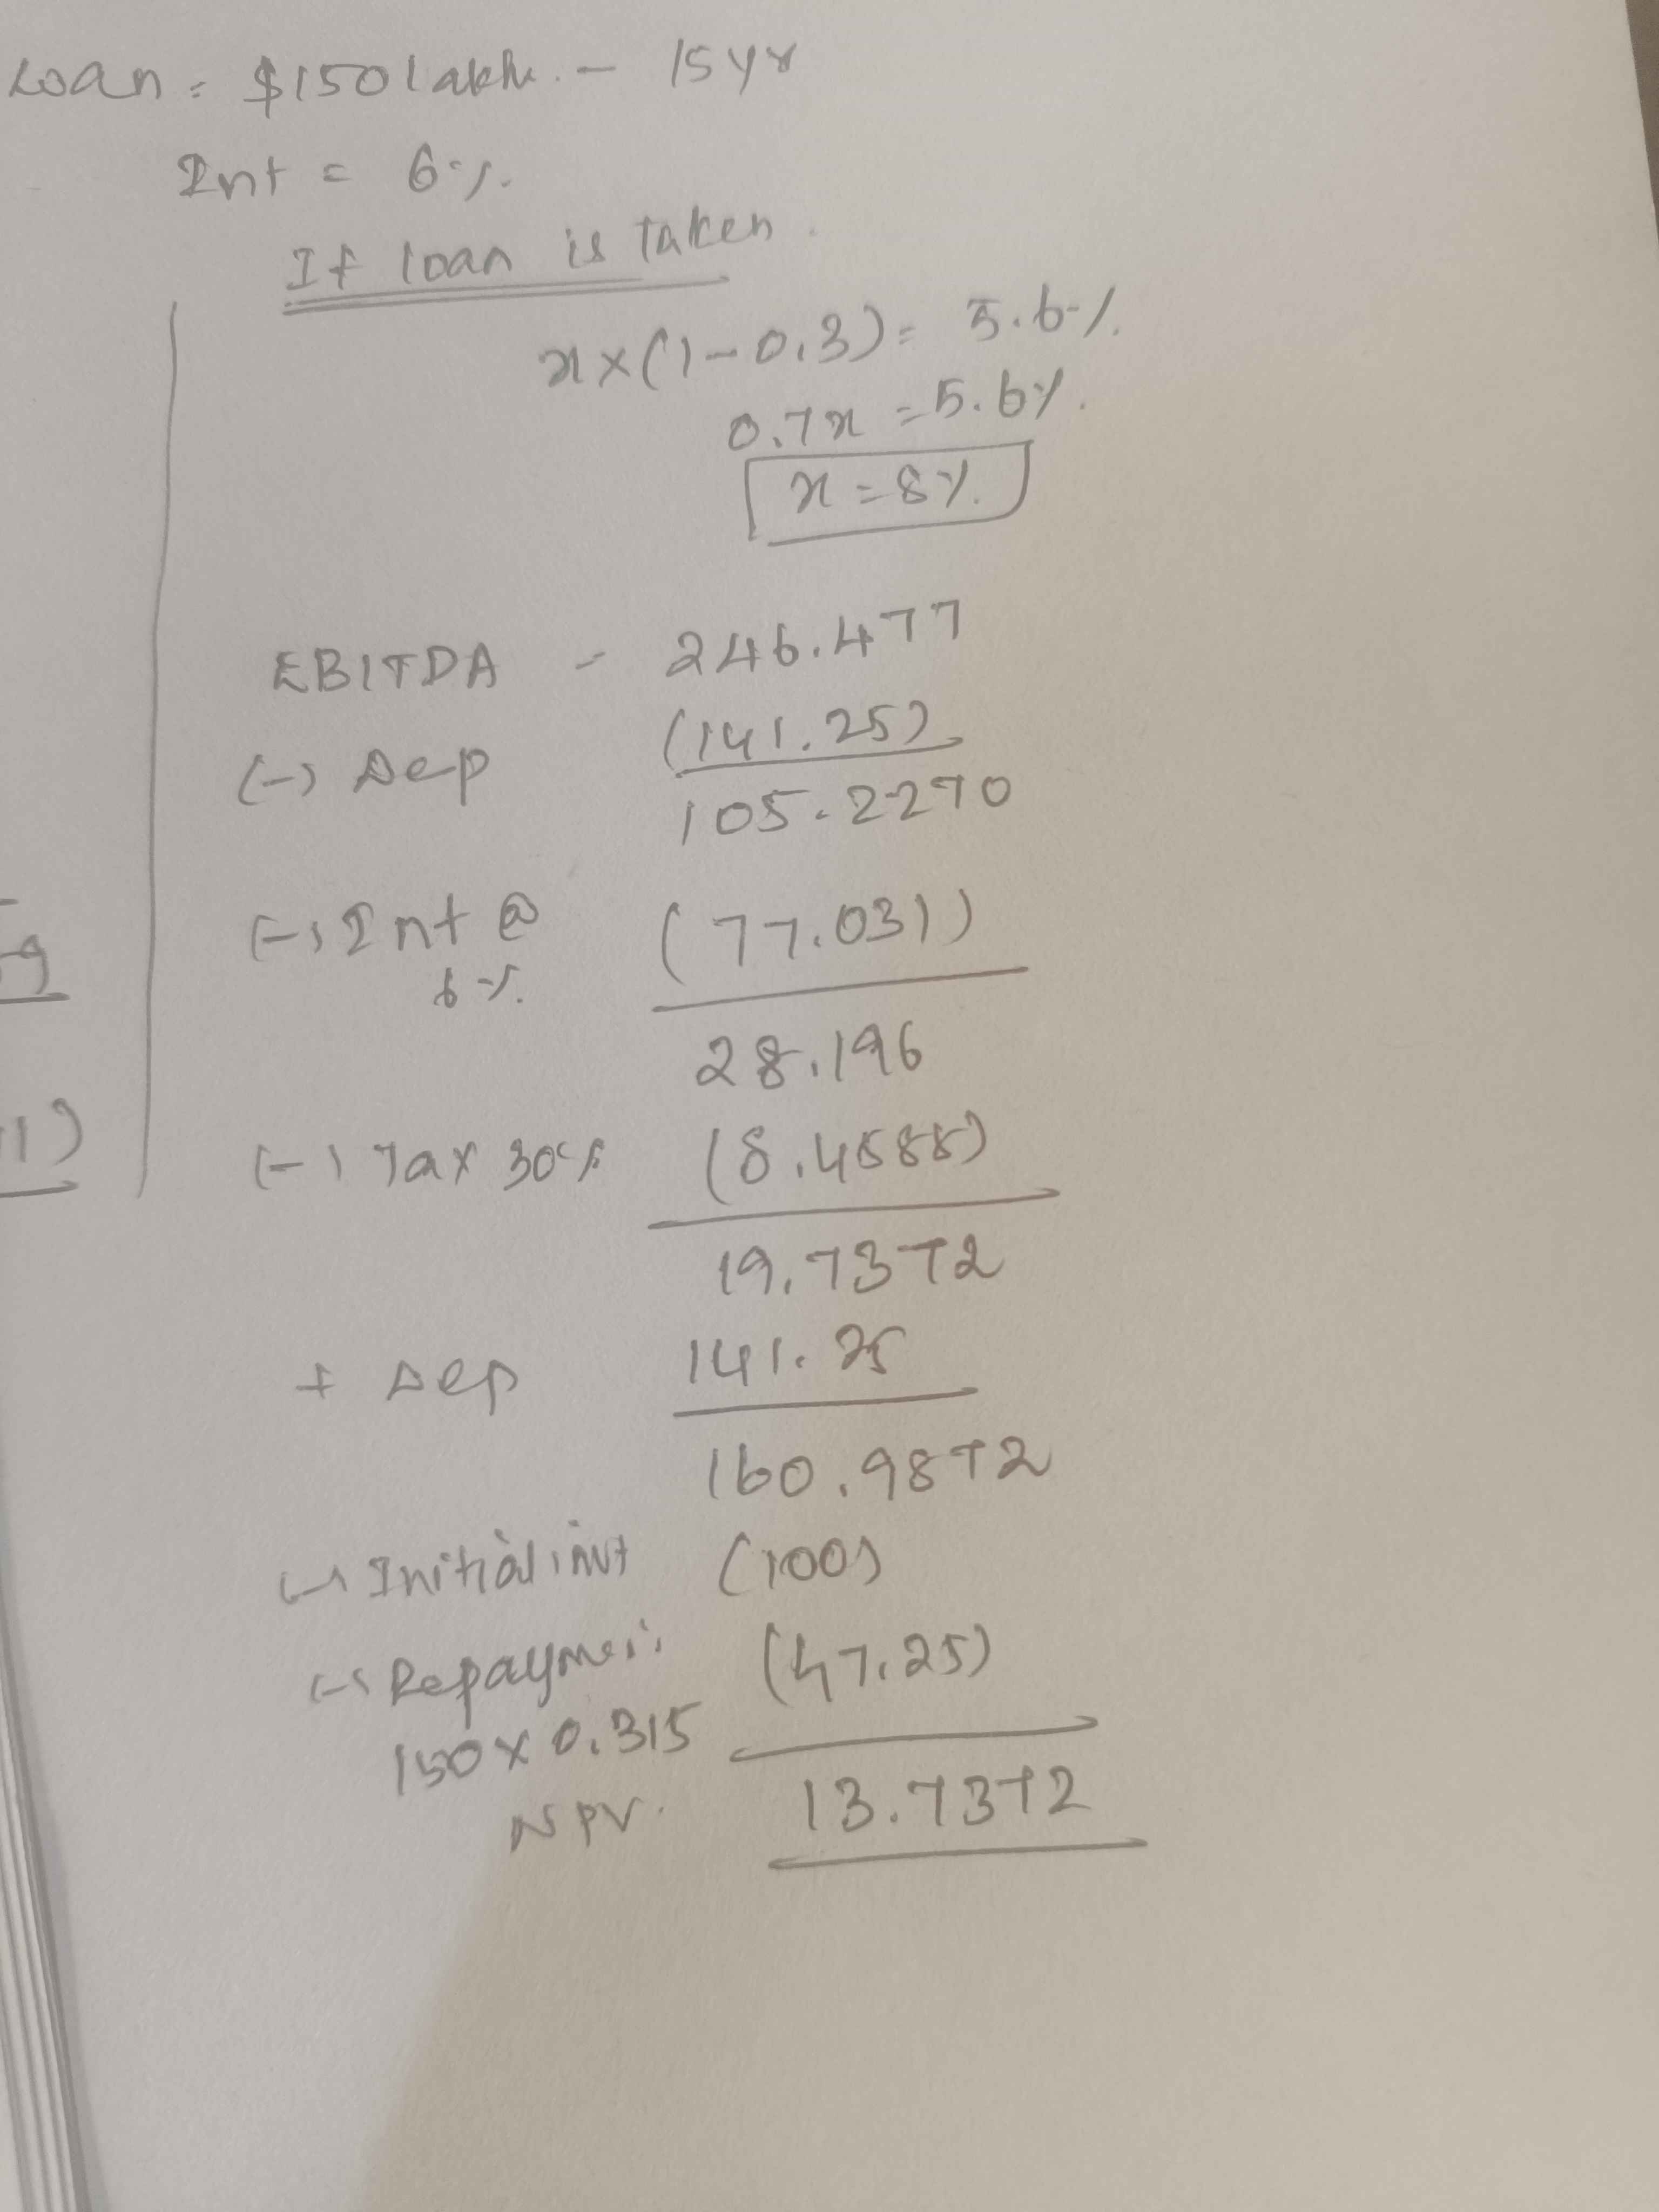 Loan = $150 lakhs. - 15 yr
Int = 6%.
If loan is taken.
x×(1-0.3) = 5.6%.
0.7x = 5.6%.
x = 8%.
EBITDA - 246.477
(-) Dep (141.25)
105.2270
(-) Int @ 6%. (77.031)
28.196
(-) Tax 30% (8.4588)
19.7372
+ Dep 141.25
160.9872
(-) Initial invt (100)
(-) Repayment (47.25)
150 x 0.315
NPV. 13.7372